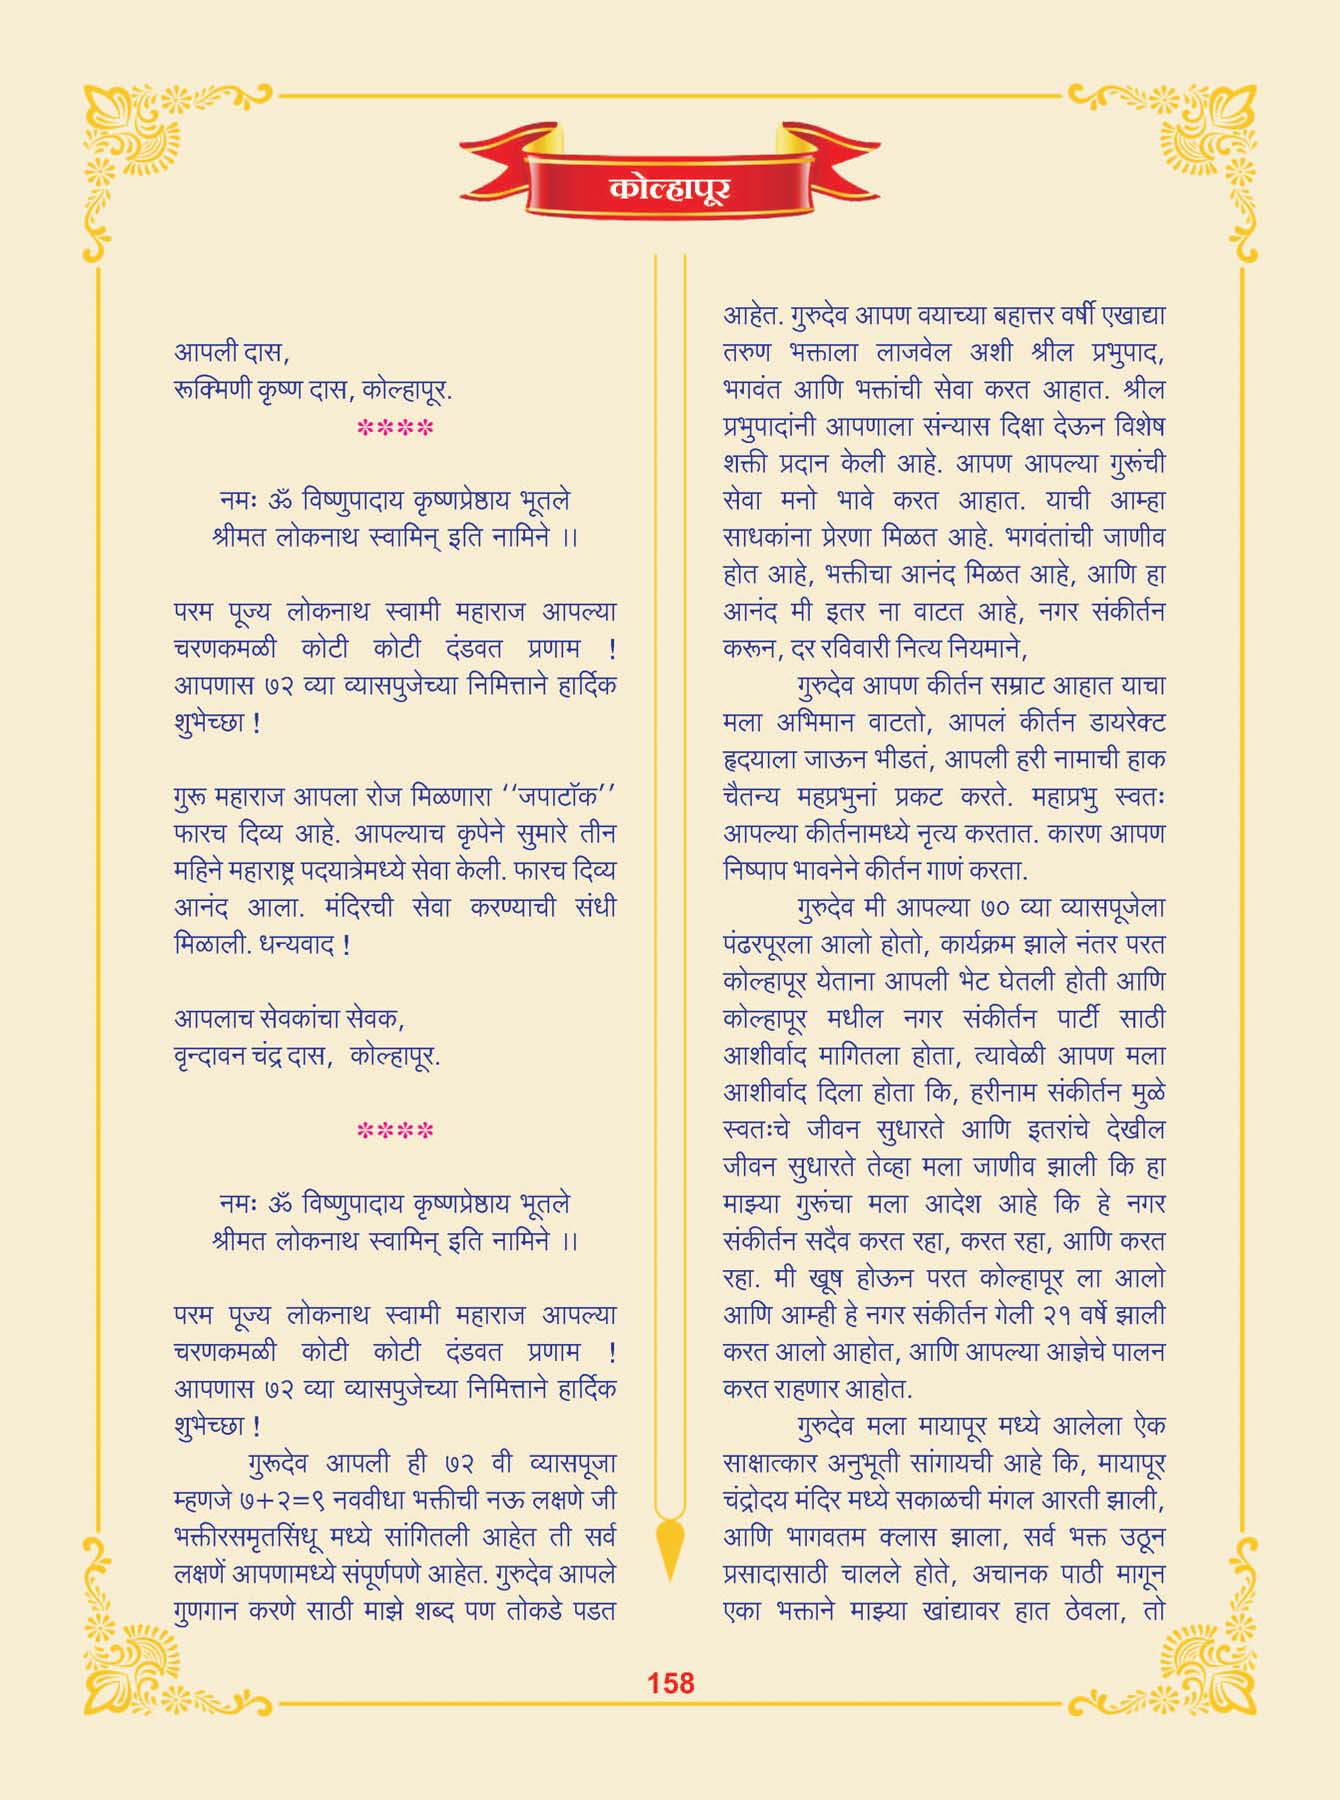 कोल्हापूर
आपली दास,
रूक्मिणी कृष्ण दास, कोल्हापूर.
****
नमः ॐ विष्णुपादाय कृष्णप्रेष्ठाय भूतले
श्रीमत लोकनाथ स्वामिन् इति नामिने ।।
परम पूज्य लोकनाथ स्वामी महाराज आपल्या
चरणकमळी कोटी कोटी दंडवत प्रणाम !
आपणास ७२ व्या व्यासपुजेच्या निमित्ताने हार्दिक
शुभेच्छा !
गुरू महाराज आपला रोज मिळणारा ‘‘जपाटॉक’’
फारच दिव्य आहे. आपल्याच कृपेने सुमारे तीन
महिने महाराष्ट्र पदयात्रेमध्ये सेवा केली. फारच दिव्य
आनंद आला. मंदिरची सेवा करण्याची संधी
मिळाली. धन्यवाद !
आपलाच सेवकांचा सेवक,
वृन्दावन चंद्र दास, कोल्हापूर.
****
नमः ॐ विष्णुपादाय कृष्णप्रेष्ठाय भूतले
श्रीमत लोकनाथ स्वामिन् इति नामिने ।।
परम पूज्य लोकनाथ स्वामी महाराज आपल्या
चरणकमळी कोटी कोटी दंडवत प्रणाम !
आपणास ७२ व्या व्यासपुजेच्या निमित्ताने हार्दिक
शुभेच्छा !
गुरूदेव आपली ही ७२ वी व्यासपूजा
म्हणजे ७+२=९ नववीधा भक्तीची नऊ लक्षणे जी
भक्तीरसमृतसिंधू मध्ये सांगितली आहेत ती सर्व
लक्षणें आपणामध्ये संपूर्णपणे आहेत. गुरुदेव आपले
गुणगान करणे साठी माझे शब्द पण तोकडे पडत
आहेत. गुरुदेव आपण वयाच्या बहात्तर वर्षी एखाद्या
तरुण भक्ताला लाजवेल अशी श्रील प्रभुपाद,
भगवंत आणि भक्तांची सेवा करत आहात. श्रील
प्रभुपादांनी आपणाला संन्यास दिक्षा देऊन विशेष
शक्ती प्रदान केली आहे. आपण आपल्या गुरूंची
सेवा मनो भावे करत आहात. याची आम्हा
साधकांना प्रेरणा मिळत आहे. भगवंतांची जाणीव
होत आहे, भक्तीचा आनंद मिळत आहे, आणि हा
आनंद मी इतर ना वाटत आहे, नगर संकीर्तन
करून, दर रविवारी नित्य नियमाने,
गुरुदेव आपण कीर्तन सम्राट आहात याचा
मला अभिमान वाटतो, आपलं कीर्तन डायरेक्ट
हृदयाला जाऊन भीडतं, आपली हरी नामाची हाक
चैतन्य महप्रभुनां प्रकट करते. महाप्रभु स्वतः
आपल्या कीर्तनामध्ये नृत्य करतात. कारण आपण
निष्पाप भावनेने कीर्तन गाणं करता.
गुरुदेव मी आपल्या ७० व्या व्यासपूजेला
पंढरपूरला आलो होतो, कार्यक्रम झाले नंतर परत
कोल्हापूर येताना आपली भेट घेतली होती आणि
कोल्हापूर मधील नगर संकीर्तन पार्टी साठी
आशीर्वाद मागितला होता, त्यावेळी आपण मला
आशीर्वाद दिला होता कि, हरीनाम संकीर्तन मुळे
स्वतःचे जीवन सुधारते आणि इतरांचे देखील
जीवन सुधारते तेव्हा मला जाणीव झाली कि हा
माझ्या गुरूंचा मला आदेश आहे कि हे नगर
संकीर्तन सदैव करत रहा, करत रहा, आणि करत
रहा. मी खूष होऊन परत कोल्हापूर ला आलो
आणि आम्ही हे नगर संकीर्तन गेली २१ वर्षे झाली
करत आलो आहोत, आणि आपल्या आज्ञेचे पालन
करत राहणार आहोत.
गुरुदेव मला मायापूर मध्ये आलेला ऐक
साक्षात्कार अनुभूती सांगायची आहे कि, मायापूर
चंद्रोदय मंदिर मध्ये सकाळची मंगल आरती झाली,
आणि भागवतम क्लास झाला, सर्व भक्त उठून
प्रसादासाठी चालले होते, अचानक पाठी मागून
एका भक्ताने माझ्या खांद्यावर हात ठेवला, तो
158